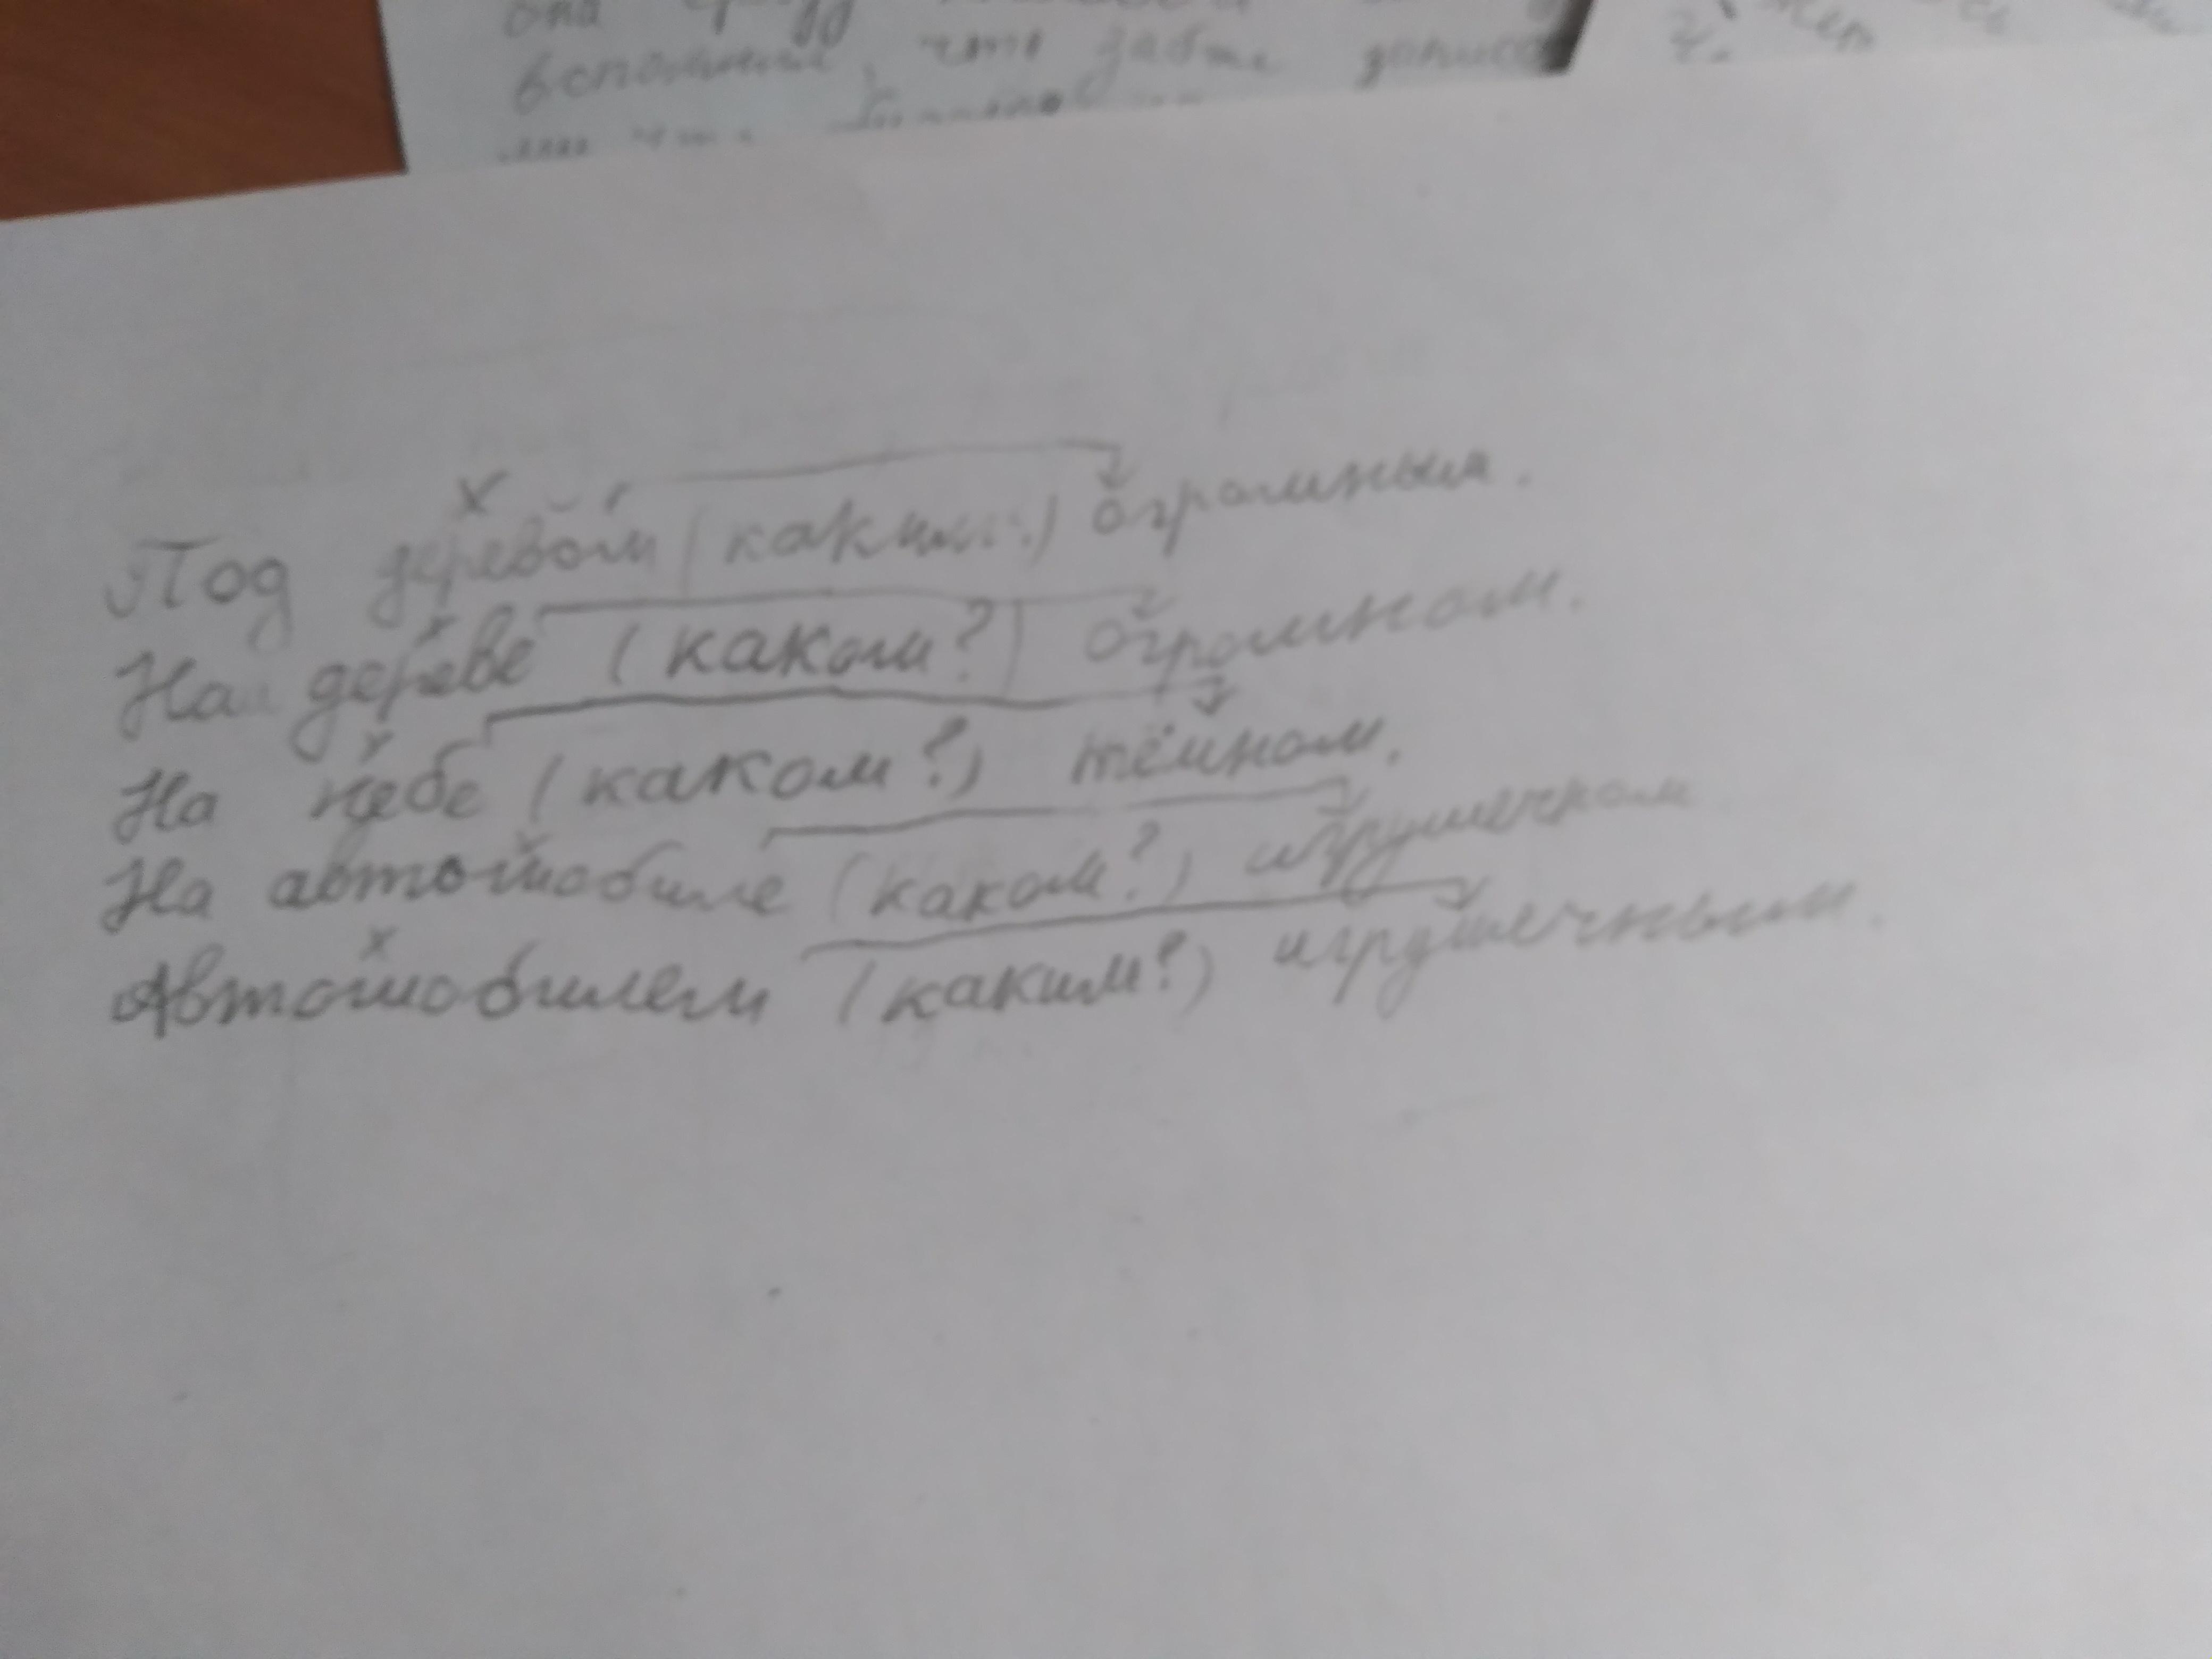 она
вспомнила, что забы
или что
Под деревом (каким?) огромным.
На дереве (каком?) огромном.
На небе (каком?) тёмном.
На автомобиле (каком?) игрушечном
Автомобилем (каким?) игрушечным.